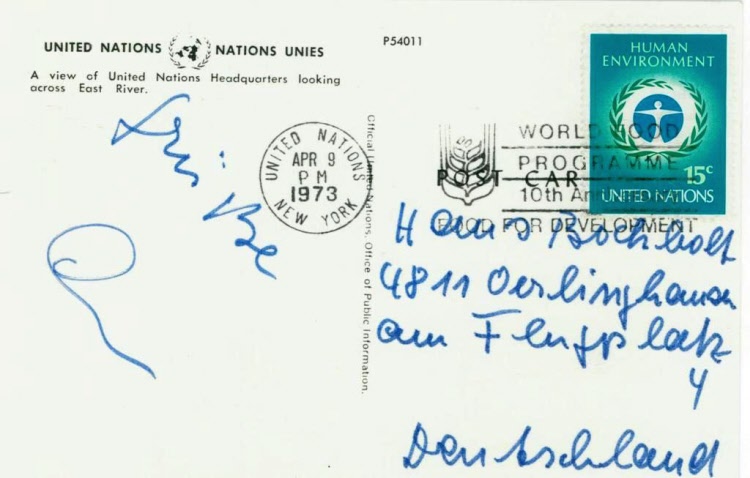 UNITED NATIONS NATIONS UNIES
A view of United Nations Headquarters looking
across East River.
P54011
Official United Nations, Office of Public Information.
UNITED NATIONS
APR 9
PM
1973
NEW YORK
HUMAN
ENVIRONMENT
15c
UNITED NATIONS
WORLD FOOD
PROGRAMME
POST CAR
10th
FOOD FOR DEVELOPMENT
Hans Bockholt
4811 Oerlinghausen
am Flugplatz
4
Deutschland